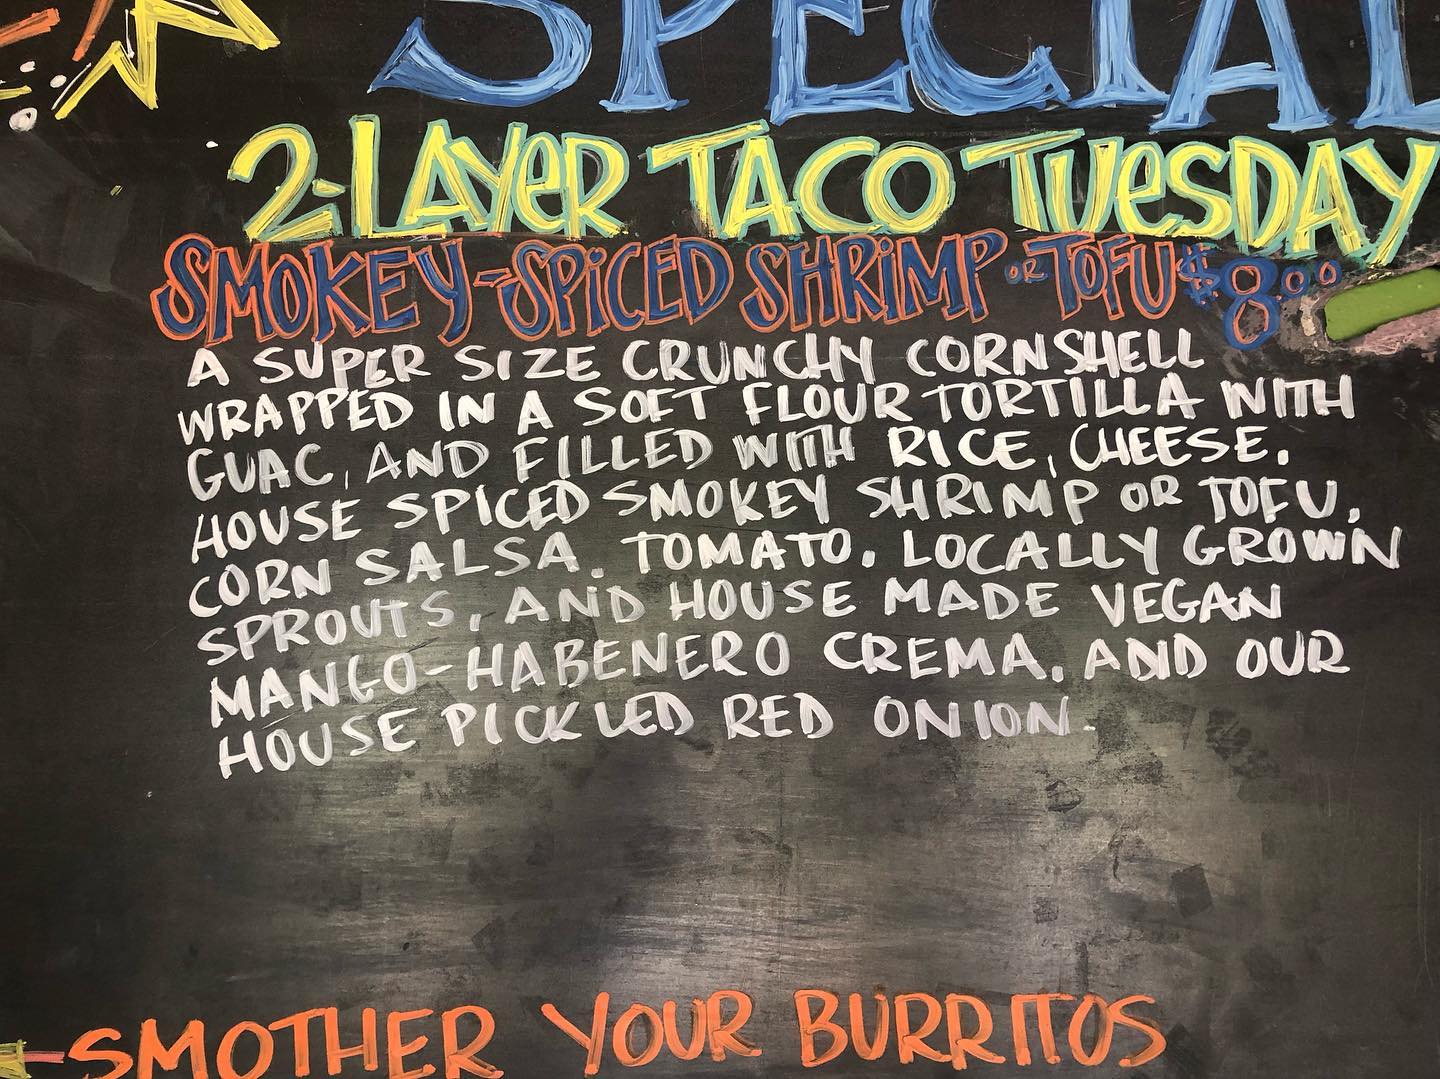 SPECIAL
2-LAYER TACO TUESDAY
SMOKEY-SPICED SHRIMP OR TOFU $8.00
A SUPER SIZE CRUNCHY CORN SHELL
WRAPPED IN A SOFT FLOUR TORTILLA WITH
GUAC, AND FILLED WITH RICE, CHEESE,
HOUSE SPICED SMOKEY SHRIMP OR TOFU,
CORN SALSA, TOMATO, LOCALLY GROWN
SPROUTS, AND HOUSE MADE VEGAN
MANGO-HABENERO CREMA, AND OUR
HOUSE PICKLED RED ONION.
SMOTHER YOUR BURRITOS